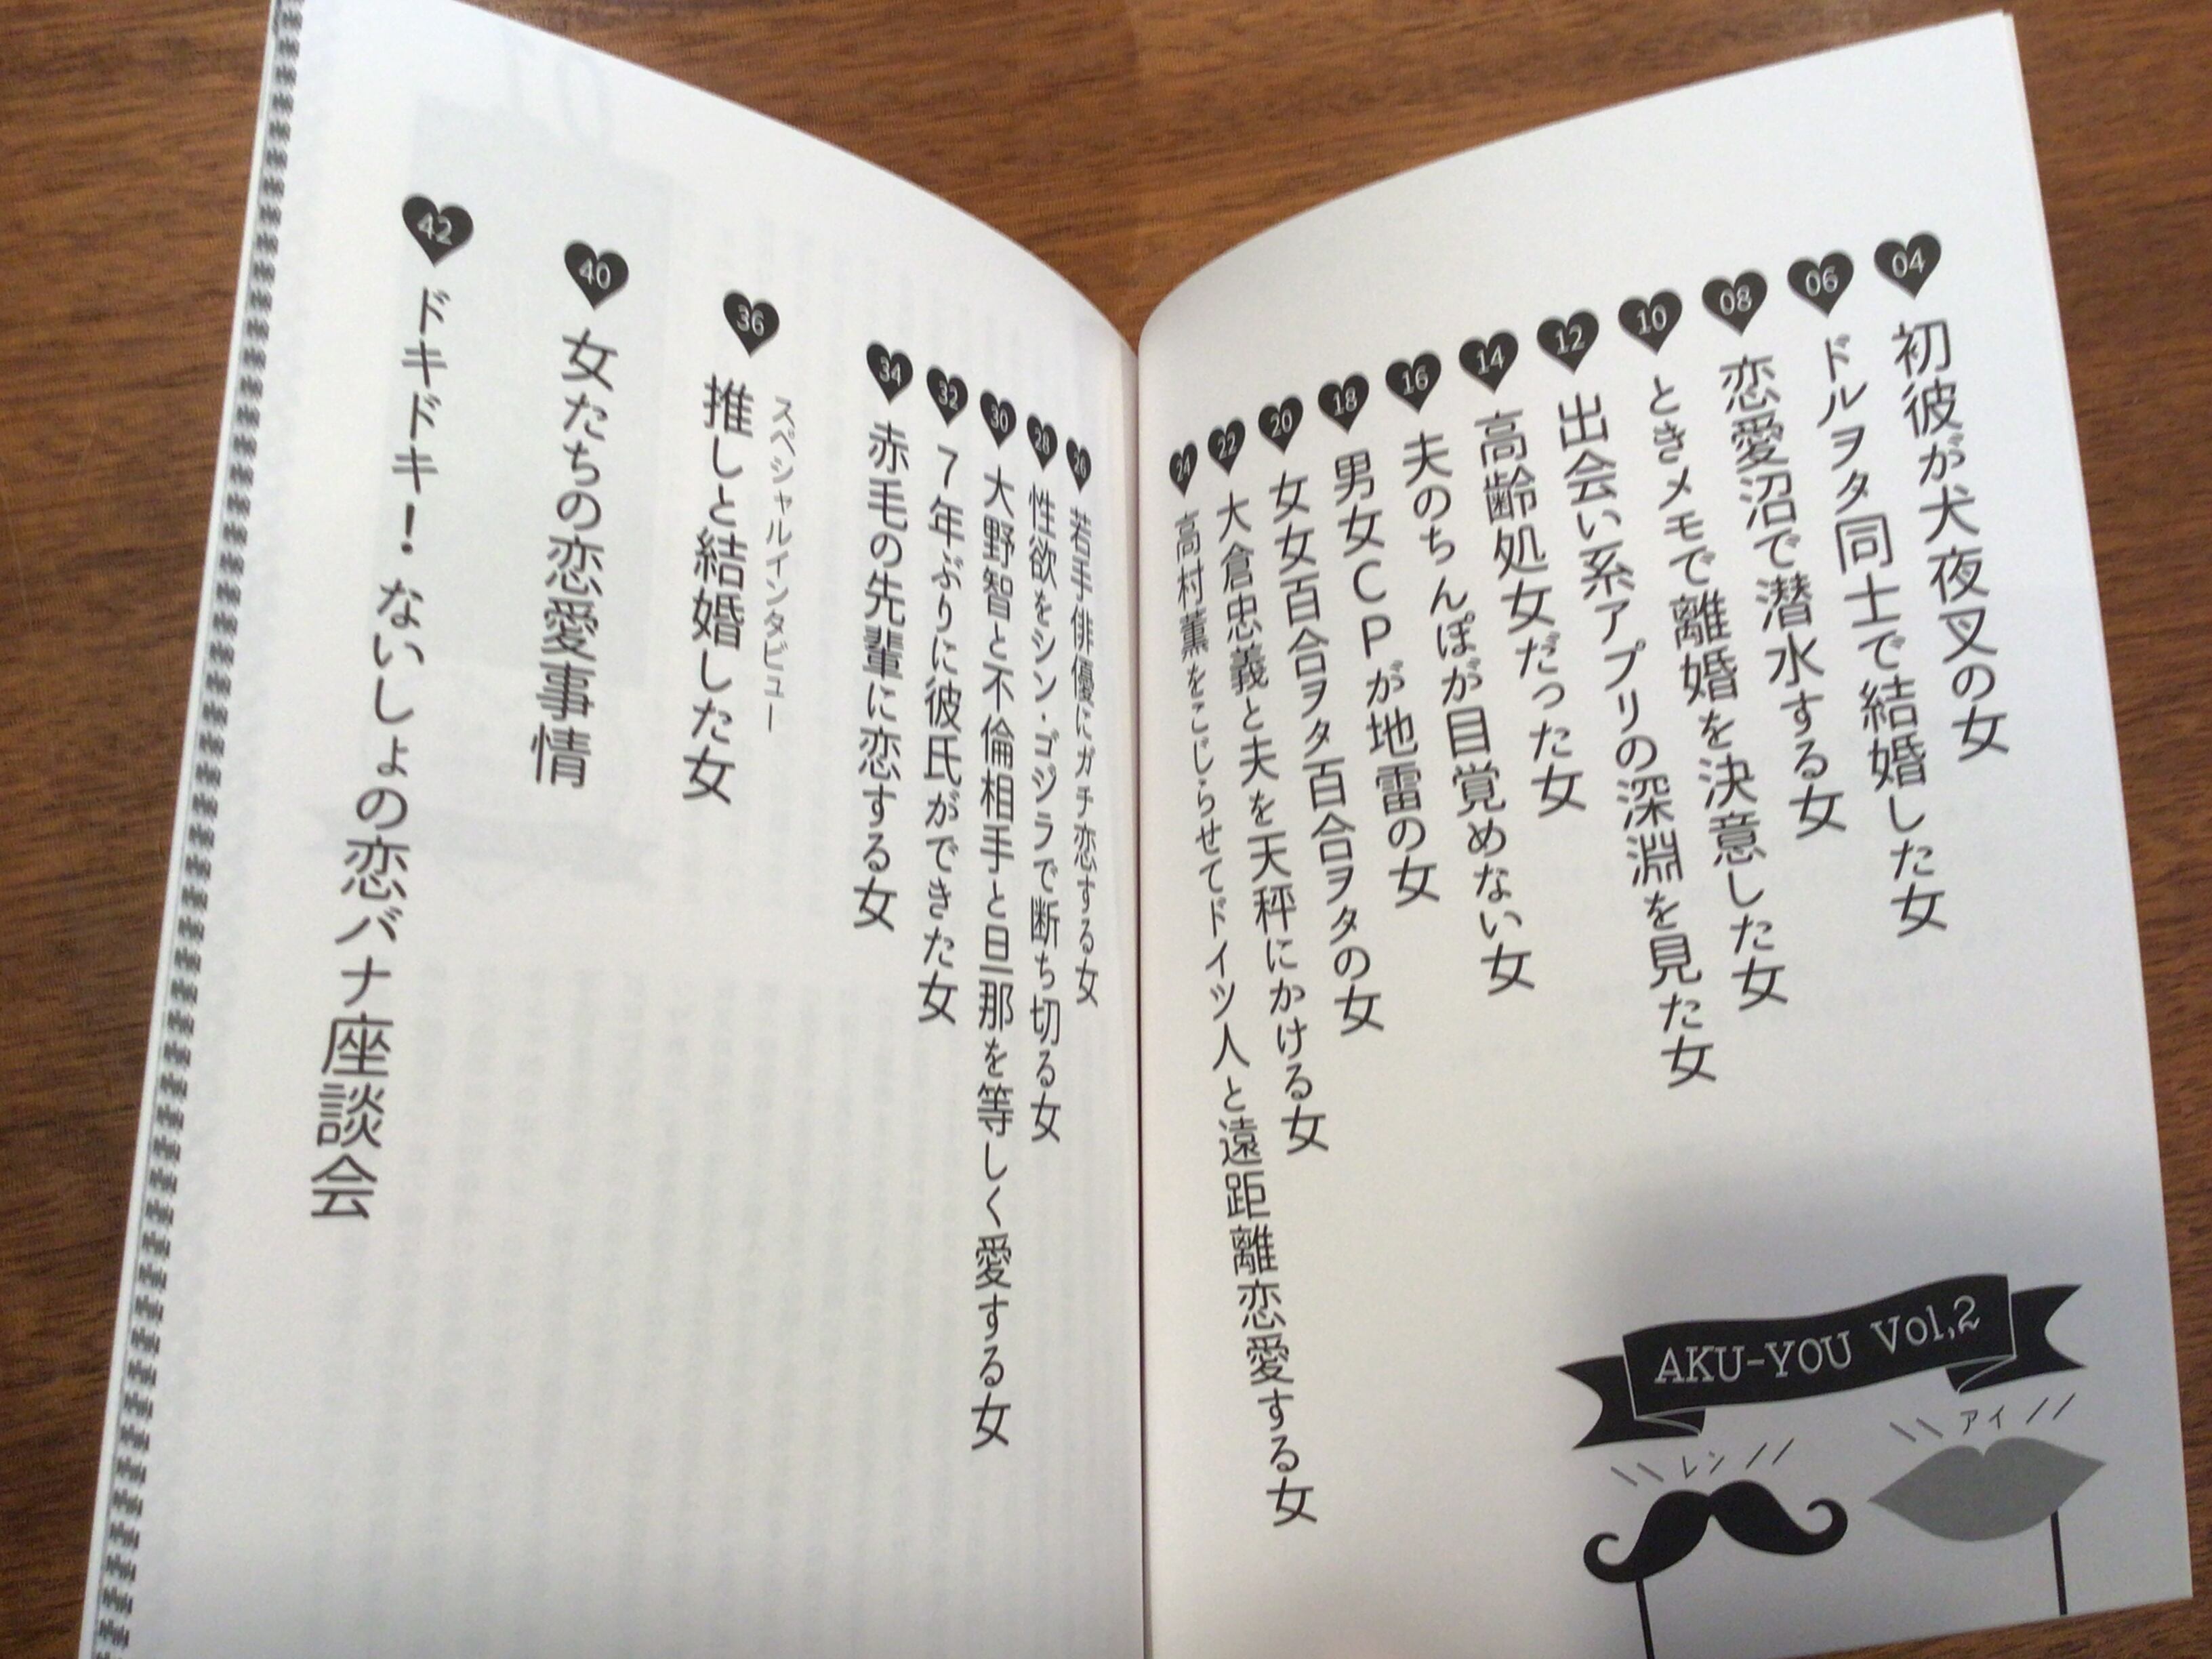 04 初彼が犬夜叉の女
06 ドルヲタ同士で結婚した女
08 恋愛沼で潜水する女
10 ときメモで離婚を決意した女
12 出会い系アプリの深淵を見た女
14 高齢処女だった女
16 夫のちんぽが目覚めない女
18 男女CPが地雷の女
20 女女百合ヲタ百合ヲタの女
22 大倉忠義と夫を天秤にかける女
24 高村薫をこじらせてドイツ人と遠距離恋愛する女
AKU-YOU Vol,2
アイ
レン
26 若手俳優にガチ恋する女
28 性欲をシン・ゴジラで断ち切る女
30 大野智と不倫相手と旦那を等しく愛する女
32 7年ぶりに彼氏ができた女
34 赤毛の先輩に恋する女
スペシャルインタビュー
36 推しと結婚した女
40 女たちの恋愛事情
42 ドキドキ！ないしょの恋バナ座談会